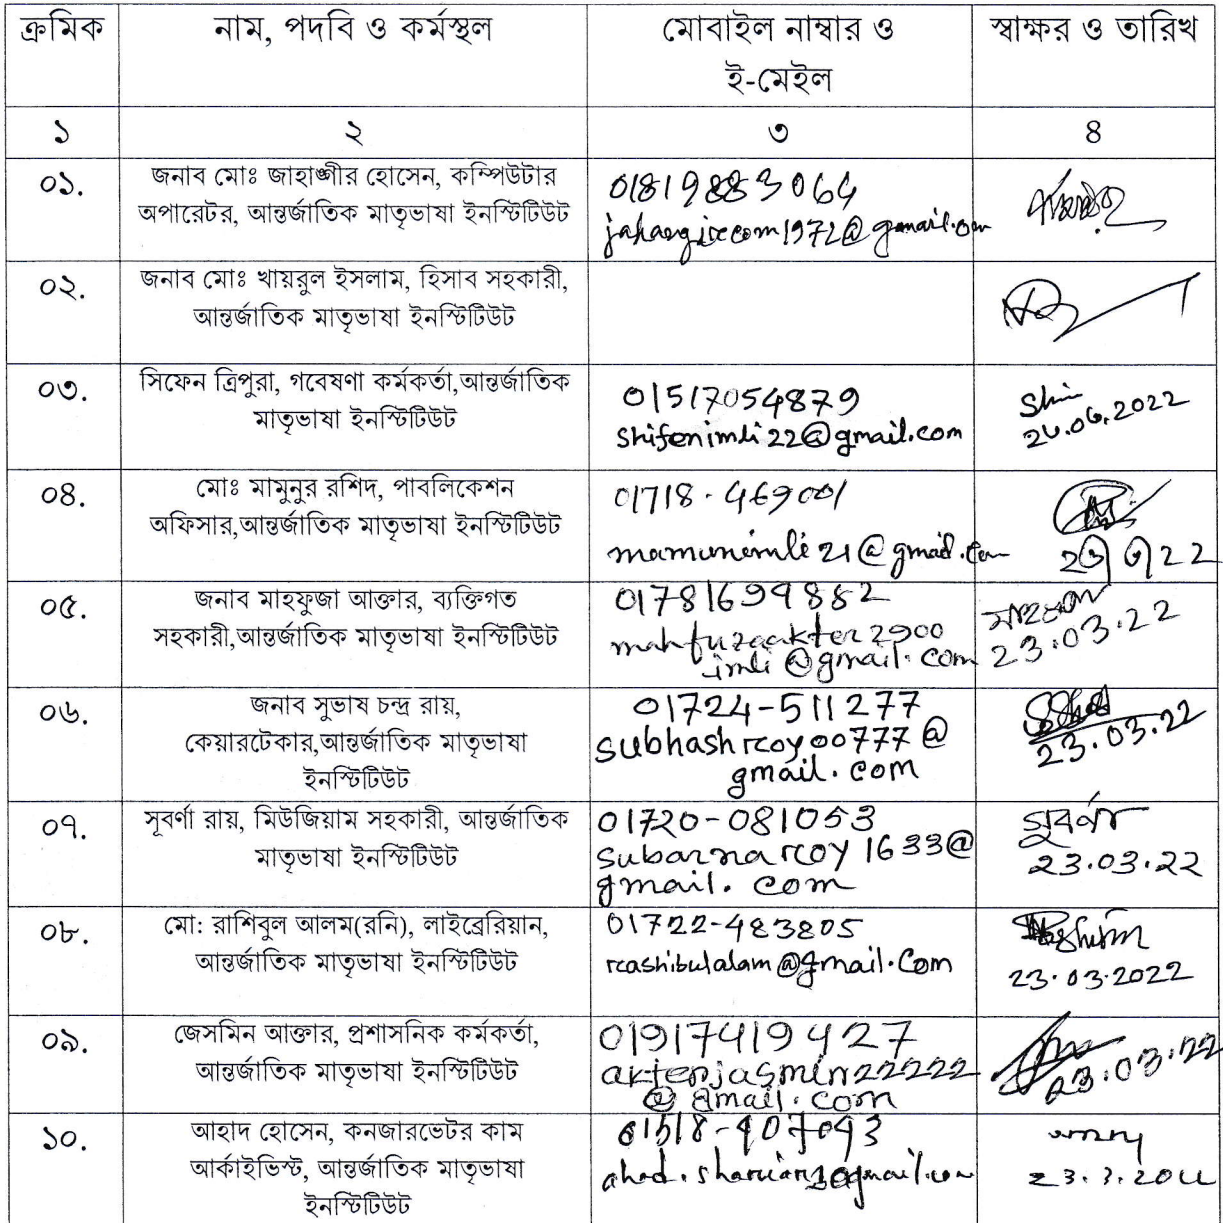 ক্রমিক নাম, পদবি ও কর্মস্থল মোবাইল নাম্বার ও স্বাক্ষর ও তারিখ
ই-মেইল
১ ২ ৩ ৪
০১. জনাব মোঃ জাহাঙ্গীর হোসেন, কম্পিউটার
অপারেটর, আন্তর্জাতিক মাতৃভাষা ইনস্টিটিউট
01819883064
০২. জনাব মোঃ খায়রুল ইসলাম, হিসাব সহকারী,
আন্তর্জাতিক মাতৃভাষা ইনস্টিটিউট
০৩. সিফেন ত্রিপুরা, গবেষণা কর্মকর্তা,আন্তর্জাতিক
মাতৃভাষা ইনস্টিটিউট
01517054879
shifenimli22@gmail.com
০৪. মোঃ মামুনুর রশিদ, পাবলিকেশন
অফিসার,আন্তর্জাতিক মাতৃভাষা ইনস্টিটিউট
01718-469001
mamunimli21@gmail.com
০৫. জনাব মাহফুজা আক্তার, ব্যক্তিগত
সহকারী,আন্তর্জাতিক মাতৃভাষা ইনস্টিটিউট
01781699882
mahfuzaakter2900
imli@gmail.com
23.03.22
০৬. জনাব সুভাষ চন্দ্র রায়,
কেয়ারটেকার,আন্তর্জাতিক মাতৃভাষা
ইনস্টিটিউট
01724-511277
subhashroy00777@
gmail.com
23.03.22
০৭. সূবর্ণা রায়, মিউজিয়াম সহকারী, আন্তর্জাতিক
মাতৃভাষা ইনস্টিটিউট
01720-081053
subarnaroy1633@
gmail.com
সুবর্ণা
23.03.22
০৮. মো: রাশিবুল আলম(রনি), লাইব্রেরিয়ান,
আন্তর্জাতিক মাতৃভাষা ইনস্টিটিউট
01722-483805
rashibulalam@gmail.com
23.03.2022
০৯. জেসমিন আক্তার, প্রশাসনিক কর্মকর্তা,
আন্তর্জাতিক মাতৃভাষা ইনস্টিটিউট
01917419427
akterjasmin22222
@gmail.com
23.03.22
১০. আহাদ হোসেন, কনজারভেটর কাম
আর্কাইভিস্ট, আন্তর্জাতিক মাতৃভাষা
ইনস্টিটিউট
01518-907093